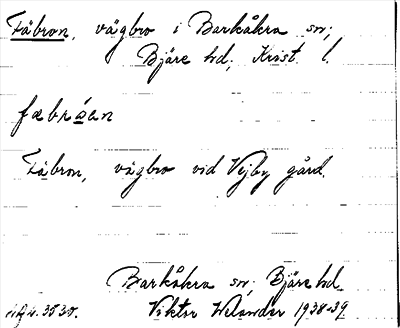 Fäbron, vägbro i Barkåkra sn,
Bjäre hd, Krist. l.
fæbrǫ́en
Fäbron, vägbro vid Vejby gård.
Barkåkra sn, Bjäre hd.
Viktor Welander 1938-39